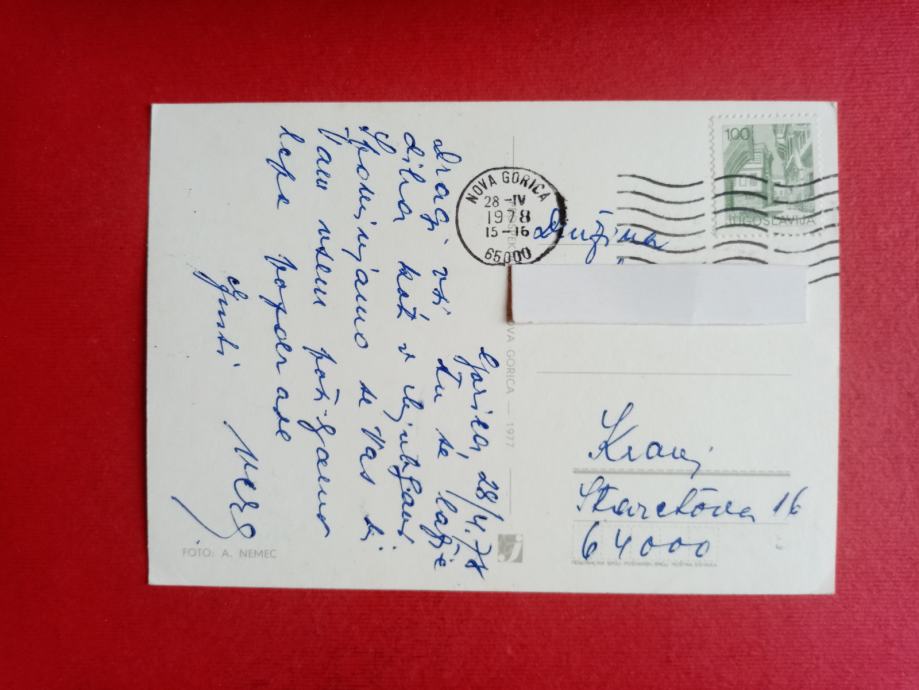 Gorica, 28/4. 78
Dragi vsi tu se lažje
diha kot v Ljubljani
Spominjamo se Vas in
Vam vsem pošiljamo
lepe pozdrave
Gusti
FOTO: A. NEMEC
NOVA GORICA — 1977
NOVA GORICA
28 -IV
1978
15-16
65000
100
JUGOSLAVIJA
Družina
Kranj
16
64000